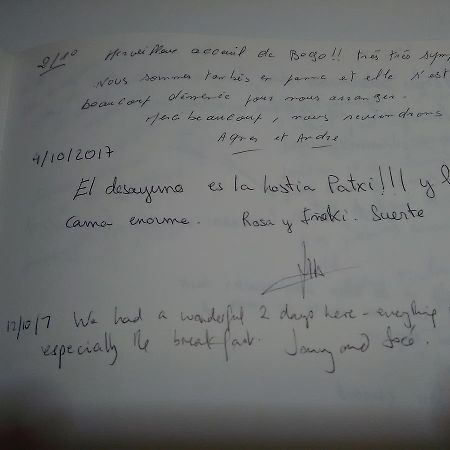 2/10 Merveilleux accueil de Bego!! très très symp
Nous sommes tombés en panne et elle s'est
beaucoup démenée pour nous arranger.
Merci beaucoup, nous reviendrons
Agnes et Andre
4/10/2017
El desayuno es la hostia Patxi!!! y l
cama enorme. Rosa y Iñaki. Suerte
12/10/7 We had a wonderful 2 days here - everything
especially the breakfast. and José.